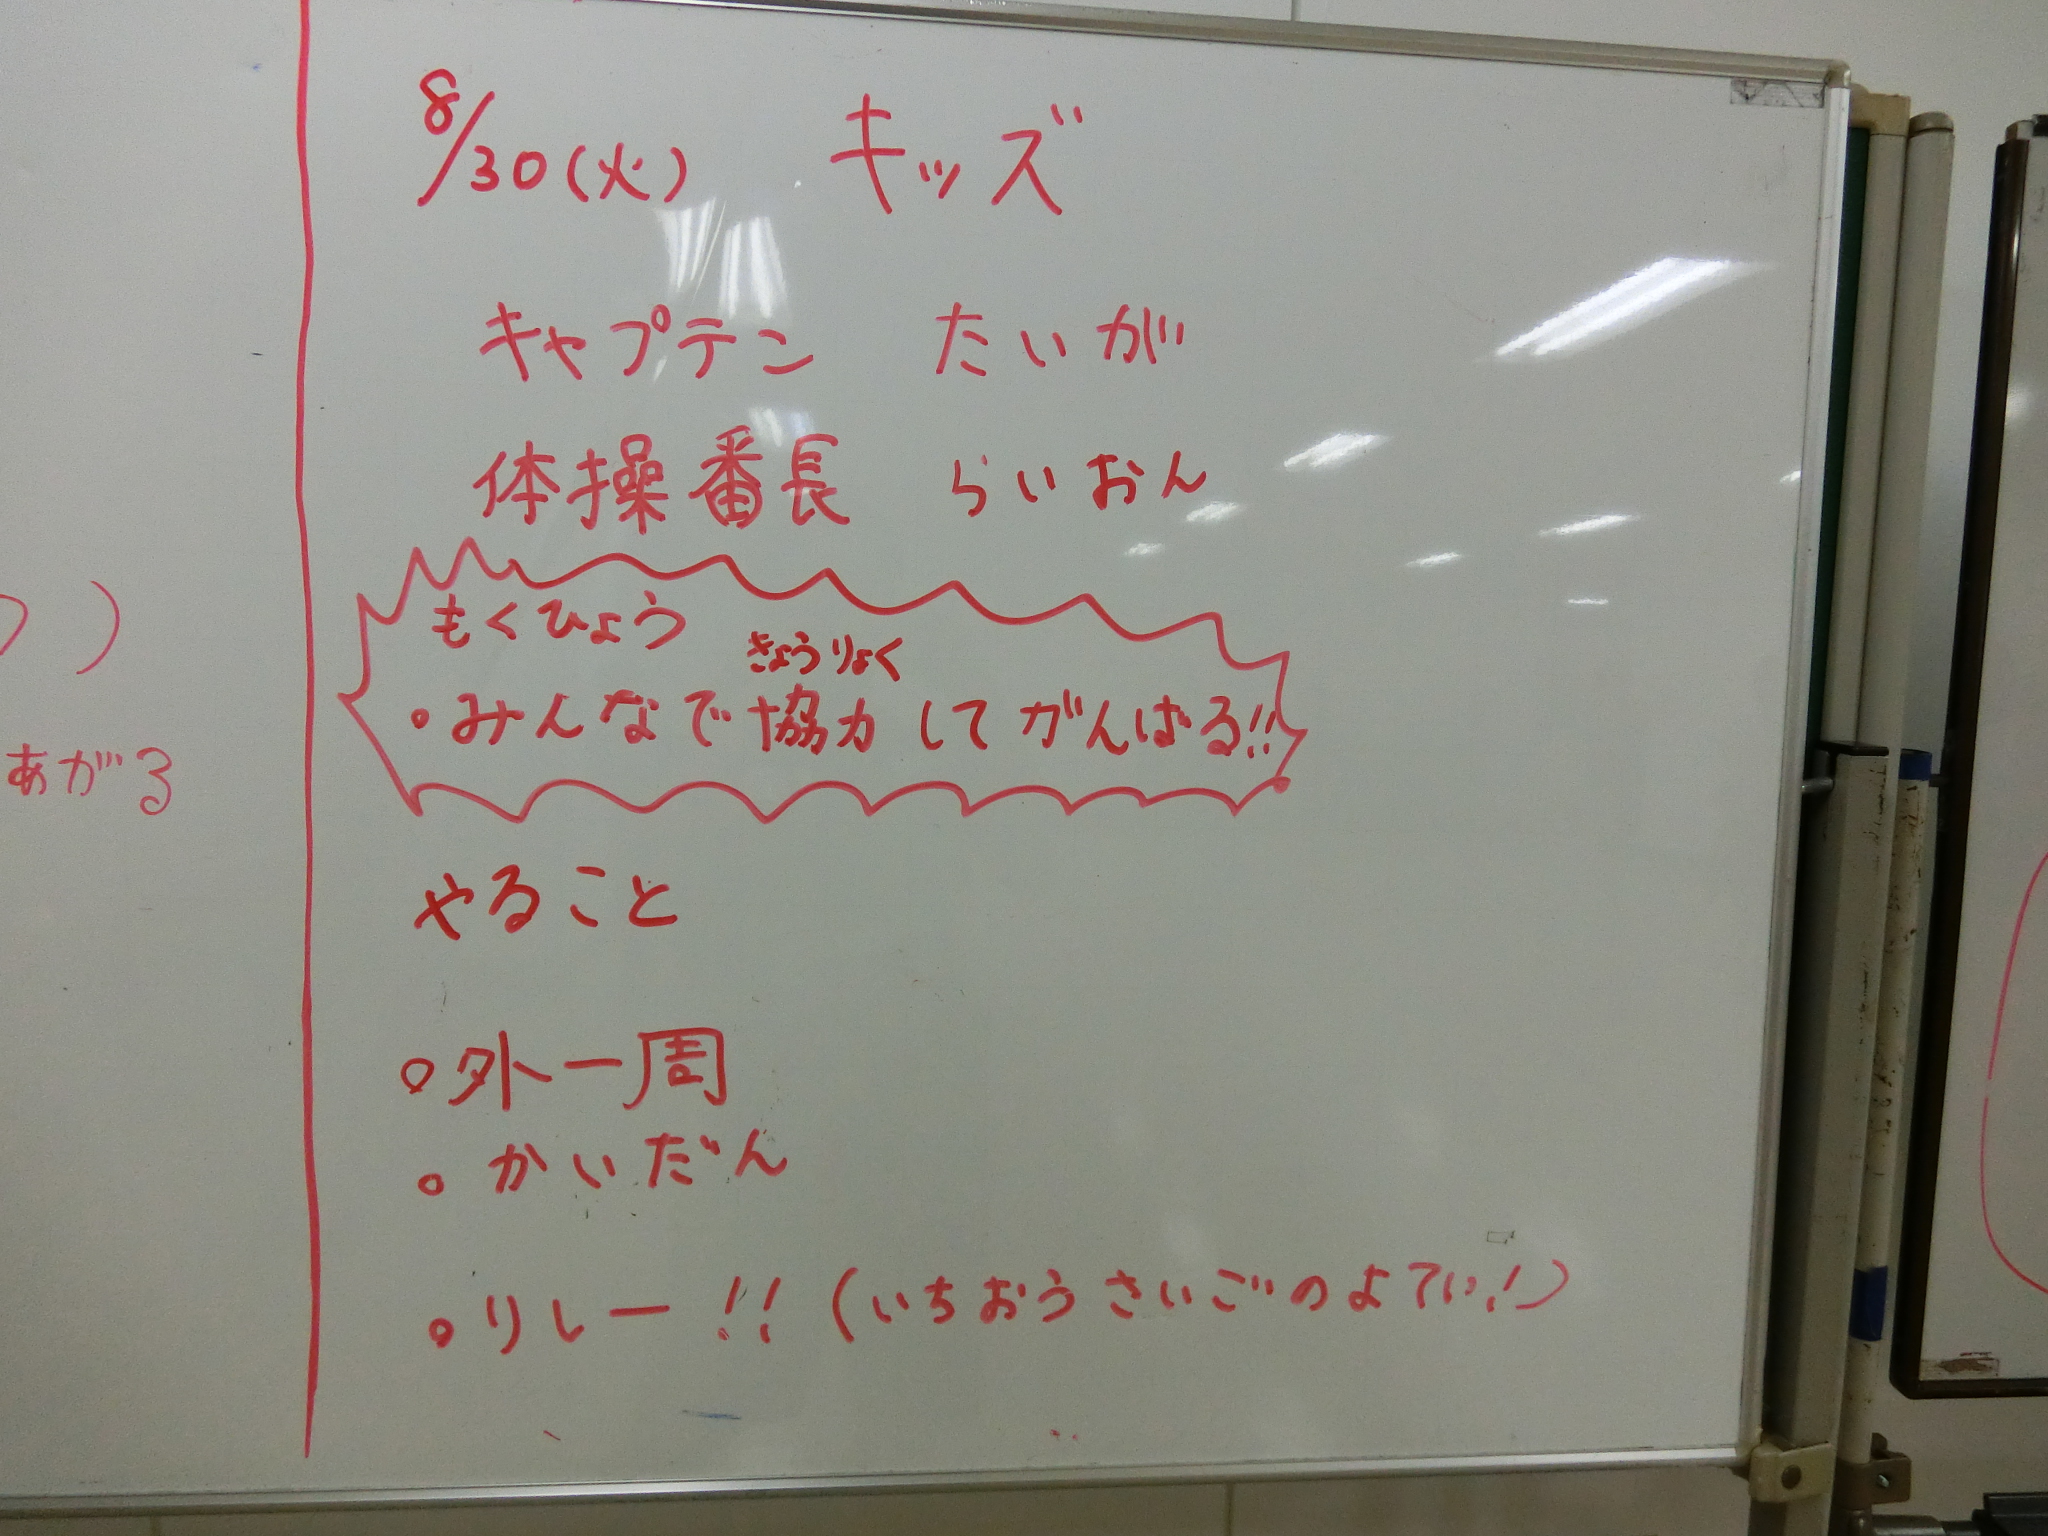 8/30(火) キッズ
キャプテン たいが
体操番長 らいおん
もくひょう
きょうりょく
・みんなで協力してがんばる!!
やること
・外一周
・かいだん
・リレー!!(いちおうさいごのよてい!)
あがる